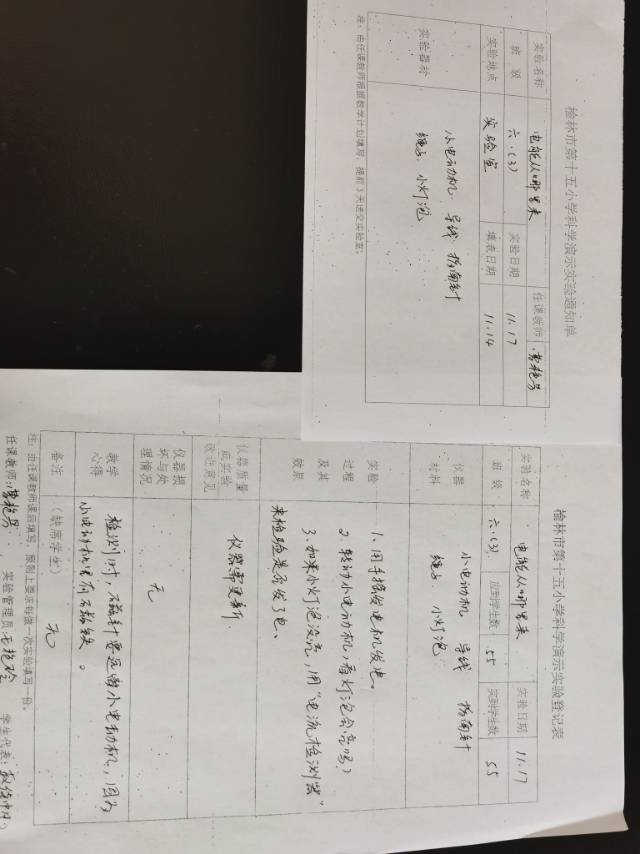 榆林市第十五小学科学演示实验通知单
实验名称 电能从哪里来 任课教师
班级 六.(3) 实验日期 11.17
实验地点 实验室 填表日期 11.14
实验器材 小电动机 导线 指南针
绳子 小灯泡
注:由任课教师根据教学计划填写,提前3天送交实验室。
榆林市第十五小学科学演示实验登记表
实验名称 电能从哪里来 实验日期 11.17
班级 六.(3) 应到学生数 55 实到学生数 55
仪器材料 小电动机 导线 指南针
绳子 小灯泡
实验过程及其效果 1.用手摇发电机发电。
2.转动小电动机,看灯泡会亮吗?
3.如果小灯泡没亮,用“电流检测器”
来检验是否发了电。
仪器质量或实验改进意见 仪器需更新
仪器损坏与处理情况 无
教学心得 检测时,磁针要远离小电动机,因为
小电动机里有磁铁。
备注 (缺席学生) 无
注:由任课教师课后填写,原则上要求每做一次实验填写一份。
任课教师: 实验管理员: 学生代表: